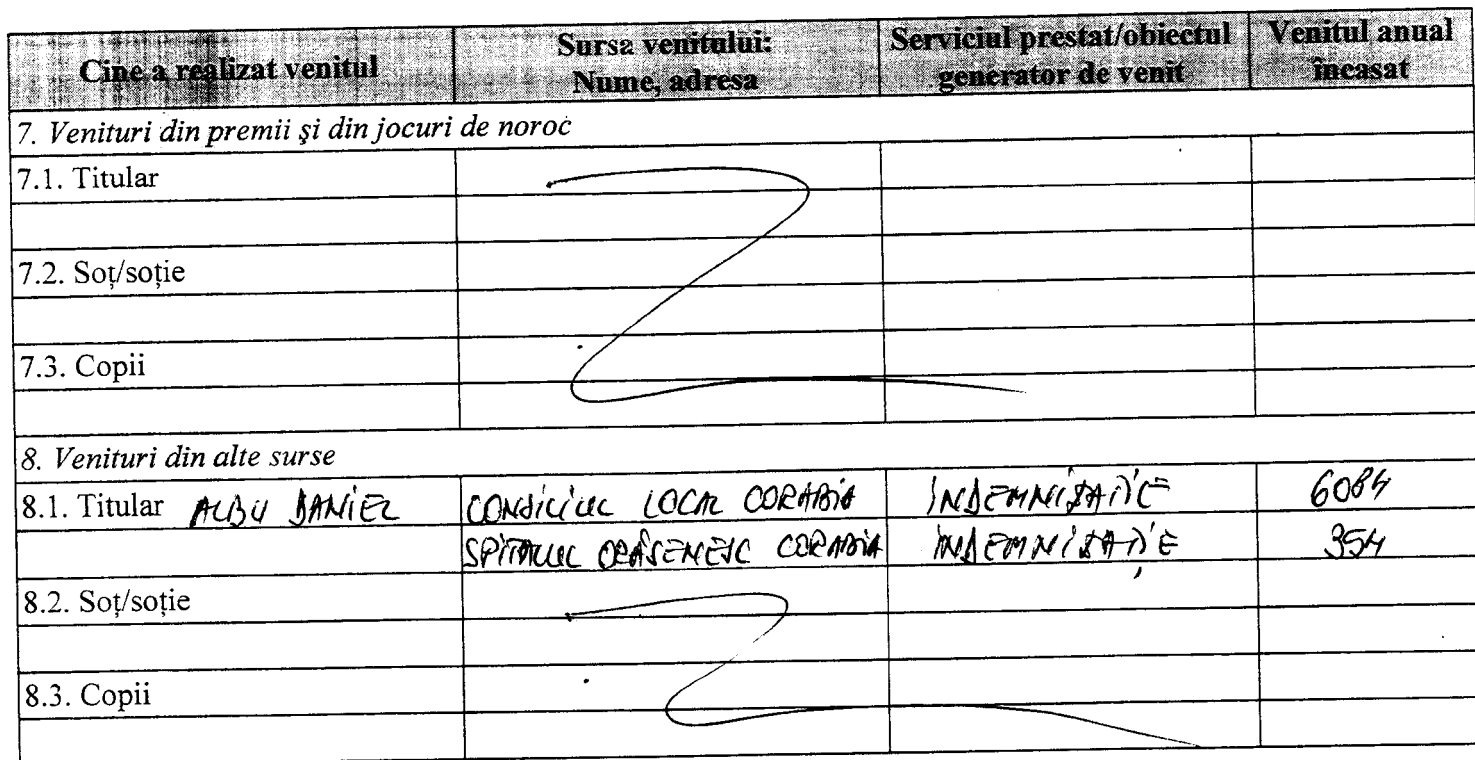 Cine a realizat venitul Sursa venitului: Nume, adresa Serviciul prestat/obiectul generator de venit Venitul anual încasat
7. Venituri din premii şi din jocuri de noroc
7.1. Titular
7.2. Soţ/soţie
7.3. Copii
8. Venituri din alte surse
8.1. Titular ALBU DANIEL CONSILIUL LOCAL CORABIA INDEMNIZAŢIE 6084
SPITALUL ORĂŞENESC CORABIA INDEMNIZAŢIE 354
8.2. Soţ/soţie
8.3. Copii